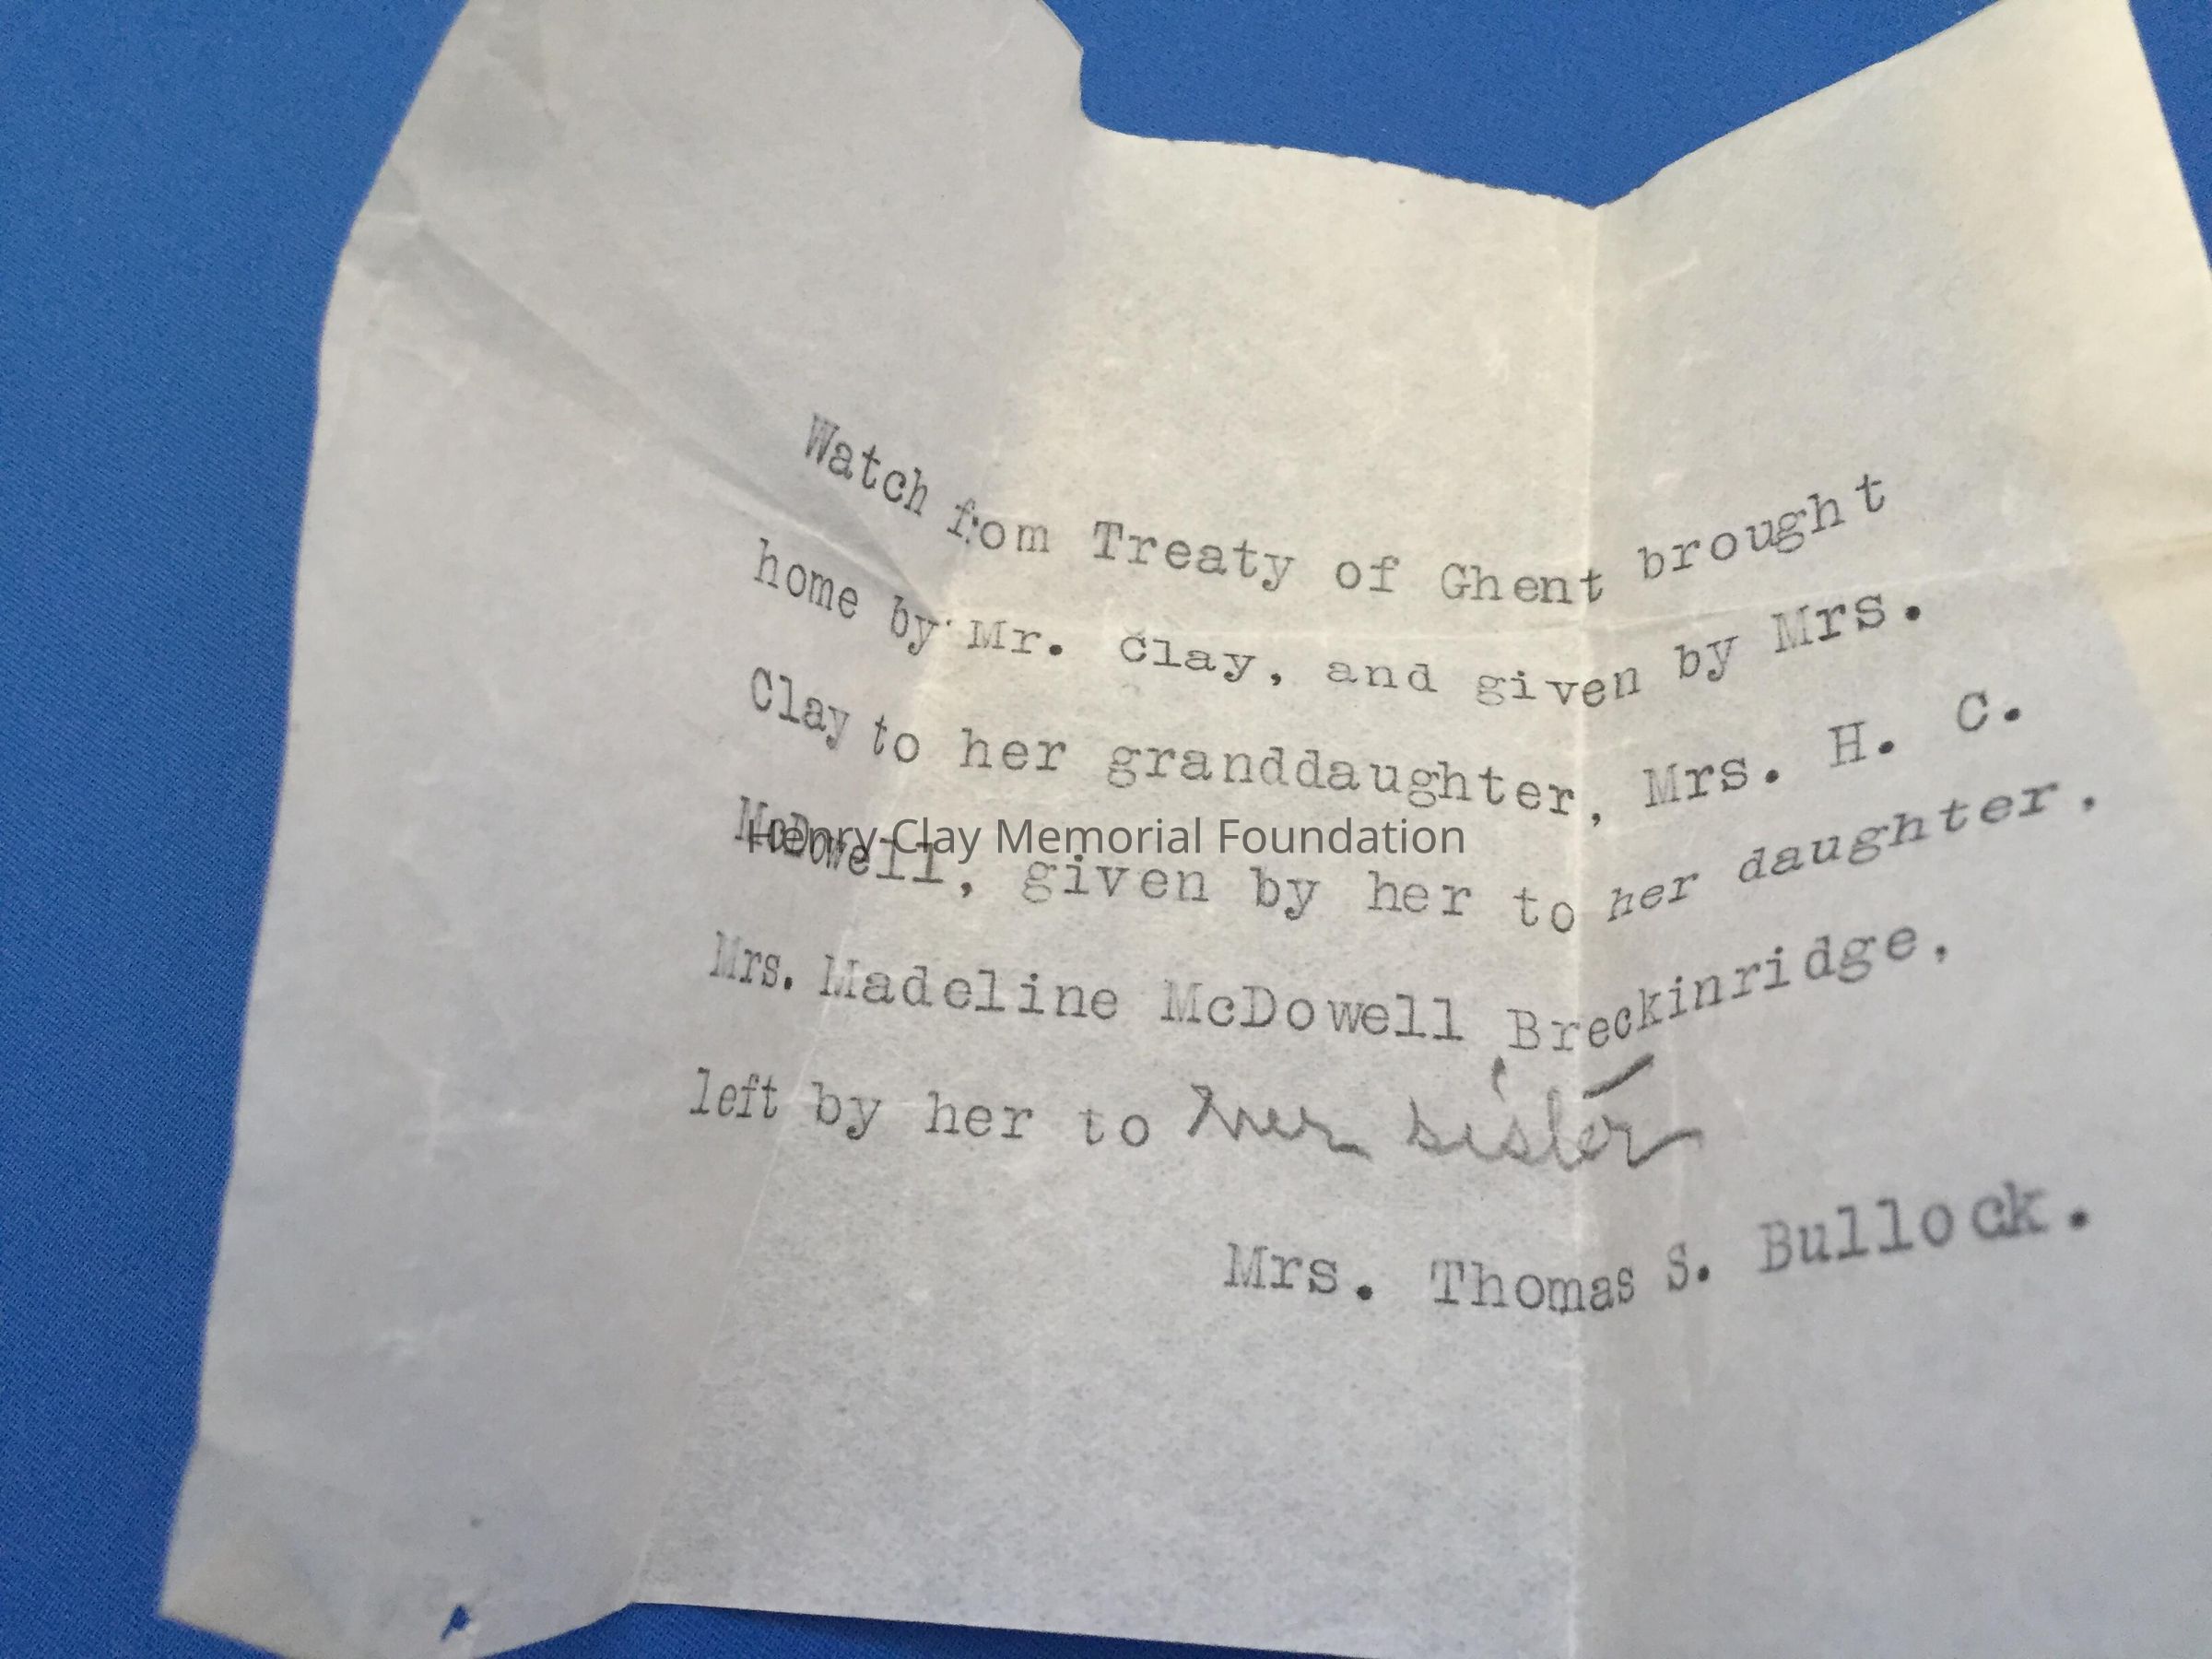 Watch from Treaty of Ghent brought
home by Mr. Clay, and given by Mrs.
Clay to her granddaughter, Mrs. H. C.
McDowell, given by her to her daughter,
Henry Clay Memorial Foundation
Mrs. Madeline McDowell Breckinridge,
left by her to her sister
Mrs. Thomas S. Bullock.